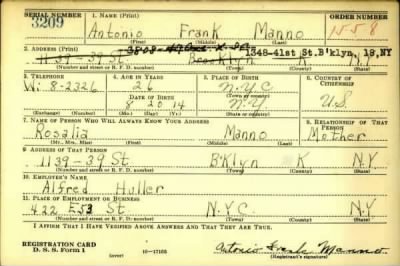 SERIAL NUMBER 1. NAME (Print) ORDER NUMBER
3209 Antonio Frank Manno 1558
(First) (Middle) (Last)
2. ADDRESS (Print) 1348-41st St. B'klyn, 18, NY
1139-39 St. Brooklyn K N.Y.
(Number and street or R. F. D. number) (Town) (County) (State)
3. TELEPHONE 4. AGE IN YEARS 5. PLACE OF BIRTH 6. COUNTRY OF CITIZENSHIP
Wi: 8-2326 26 N.Y.C.
DATE OF BIRTH (Town or county)
8 20 14 N.Y U.S.
(Exchange) (Number) (Mo.) (Day) (Yr.) (State or country)
7. NAME OF PERSON WHO WILL ALWAYS KNOW YOUR ADDRESS 8. RELATIONSHIP OF THAT PERSON
Rosalia Manno Mother
(Mr., Mrs., Miss) (First) (Middle) (Last)
9. ADDRESS OF THAT PERSON
1139-39 St B'Klyn K N.Y.
(Number and street or R. F. D. number) (Town) (County) (State)
10. EMPLOYER'S NAME
Alfred Huller
11. PLACE OF EMPLOYMENT OR BUSINESS
422 E53 St N.Y.C. N.Y
(Number and street or R. F. D. number) (Town) (County) (State)
I AFFIRM THAT I HAVE VERIFIED ABOVE ANSWERS AND THAT THEY ARE TRUE.
REGISTRATION CARD
D. S. S. Form 1 (over) 16-17105 Antonio Frank Manno
(Registrant's signature)